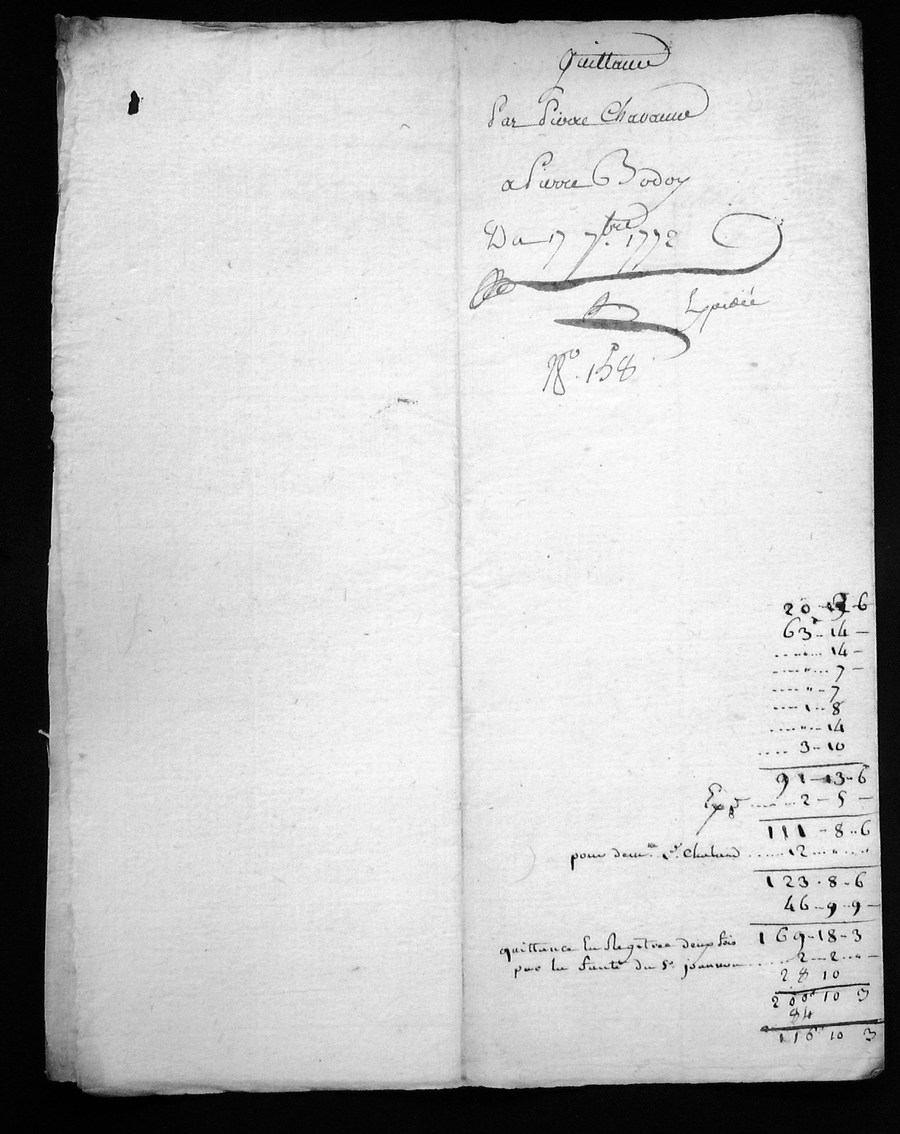 Quittance
Par Pierre Chavanne
a Pierre Bodoy
Du 17 7bre. 1772
Expediée
No. 158
20 - 19 - 6
63 - 14 -
..... 14 -
..... 7 -
..... 7
.... 1 .. 8
..... 14
.... 3 - 10
91 - 13 - 6
Exp ..... 2 - 5 -
111 - 8 .. 6
pour dem. Sr. ..... 12 ... " .. "
123 . 8 - 6
46 - 9 - 9 -
169 - 18 - 3
quittance En Registree deux fois
par la faute du Sr. joannon ..... 2 - 2 - " -
28 10
200 10 3
84
116 10 3